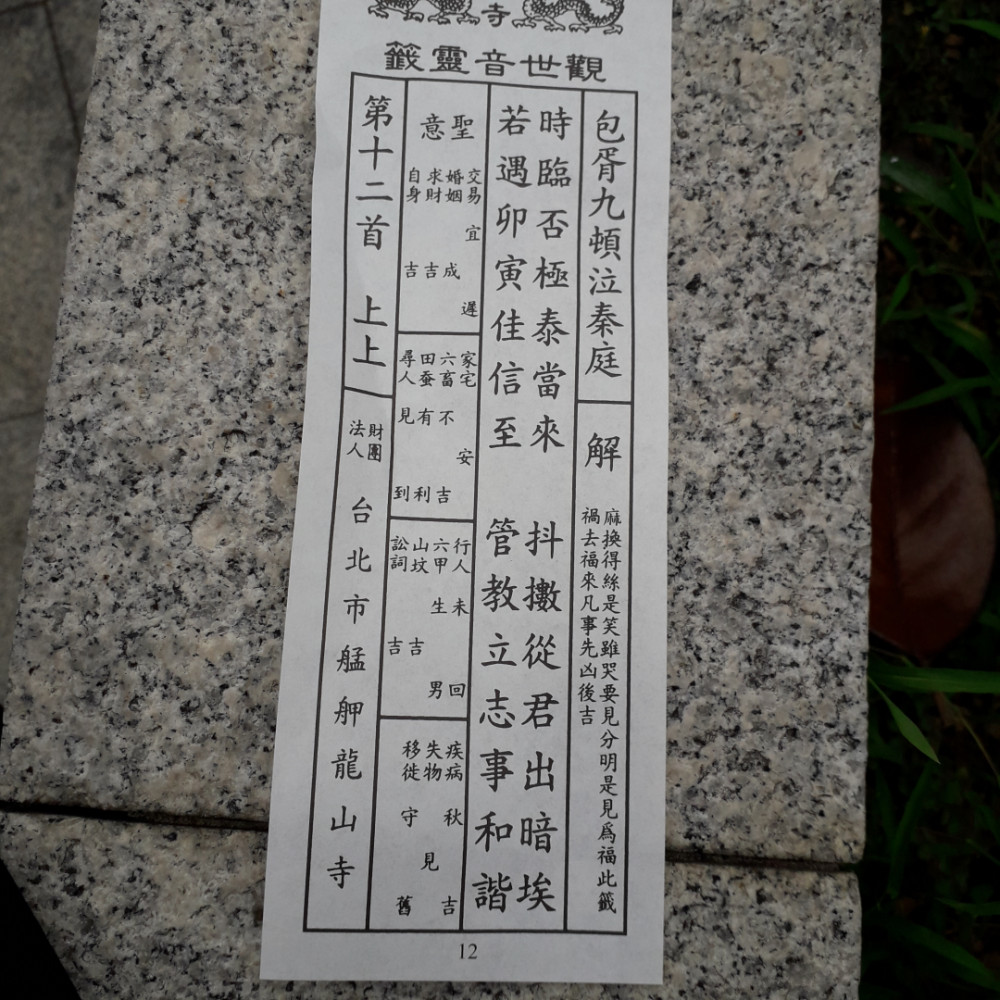 寺
觀世音靈籤
包胥九頓泣秦庭
解
麻換得絲是笑雖哭要見分明是見為福此籤
禍去福來凡事先凶後吉
時臨否極泰當來 抖擻從君出暗埃
若遇卯寅佳信至 管教立志事和諧
聖意
交易 宜遲
婚姻 成
求財 吉
自身 吉
家宅 安
六畜 不吉
田蚕 有利
尋人 見到
行人 未回
六甲 生男
山坟 吉
訟詞 吉
疾病 秋吉
失物 見
移徙 守舊
第十二首 上上
財團法人 台北市艋舺龍山寺
12